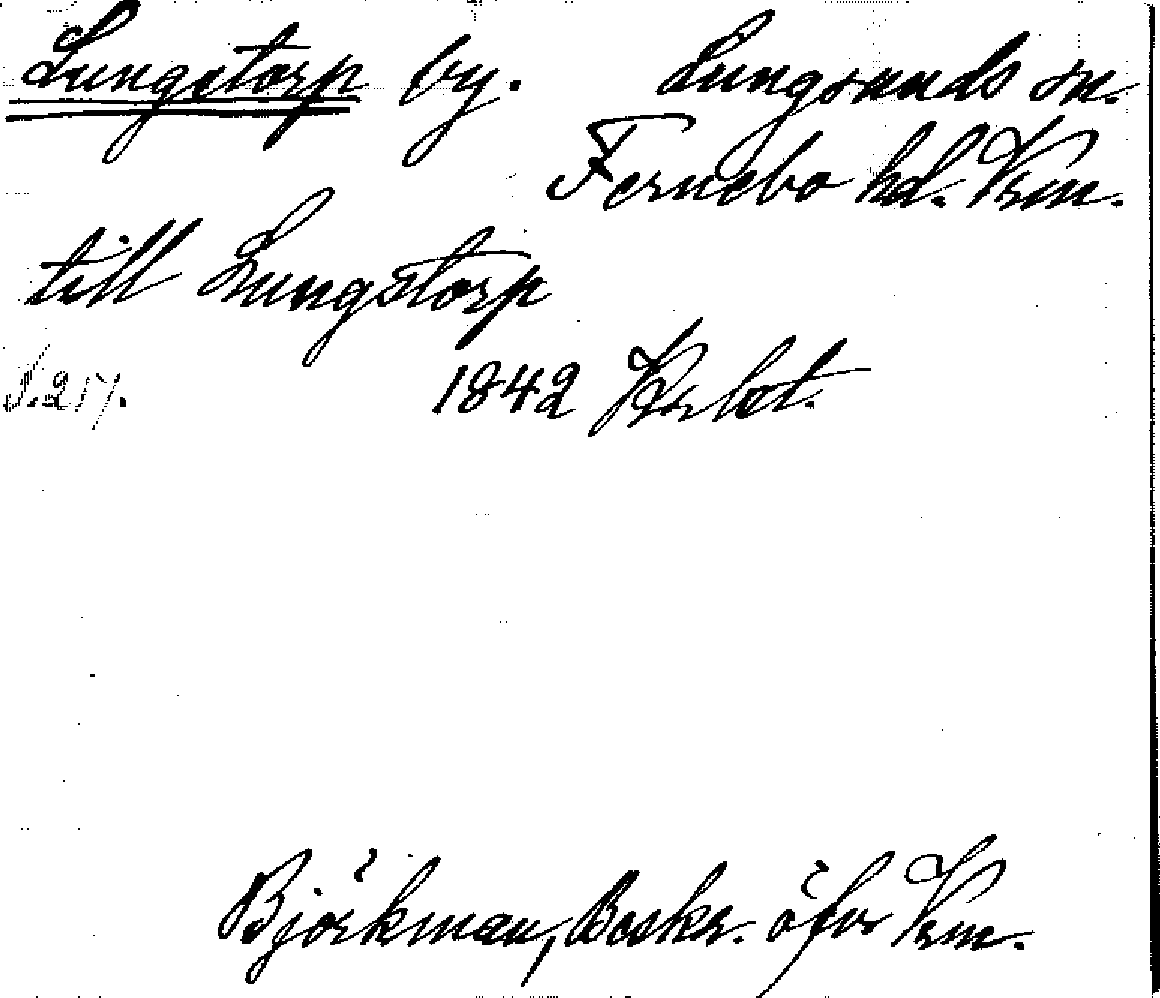 Lungstorp by. Lungsunds sn.
Fernebo hd. Vrm.
till Lungstorp
S. 217. 1842
Björkman, Beskr. öfver Vrm.